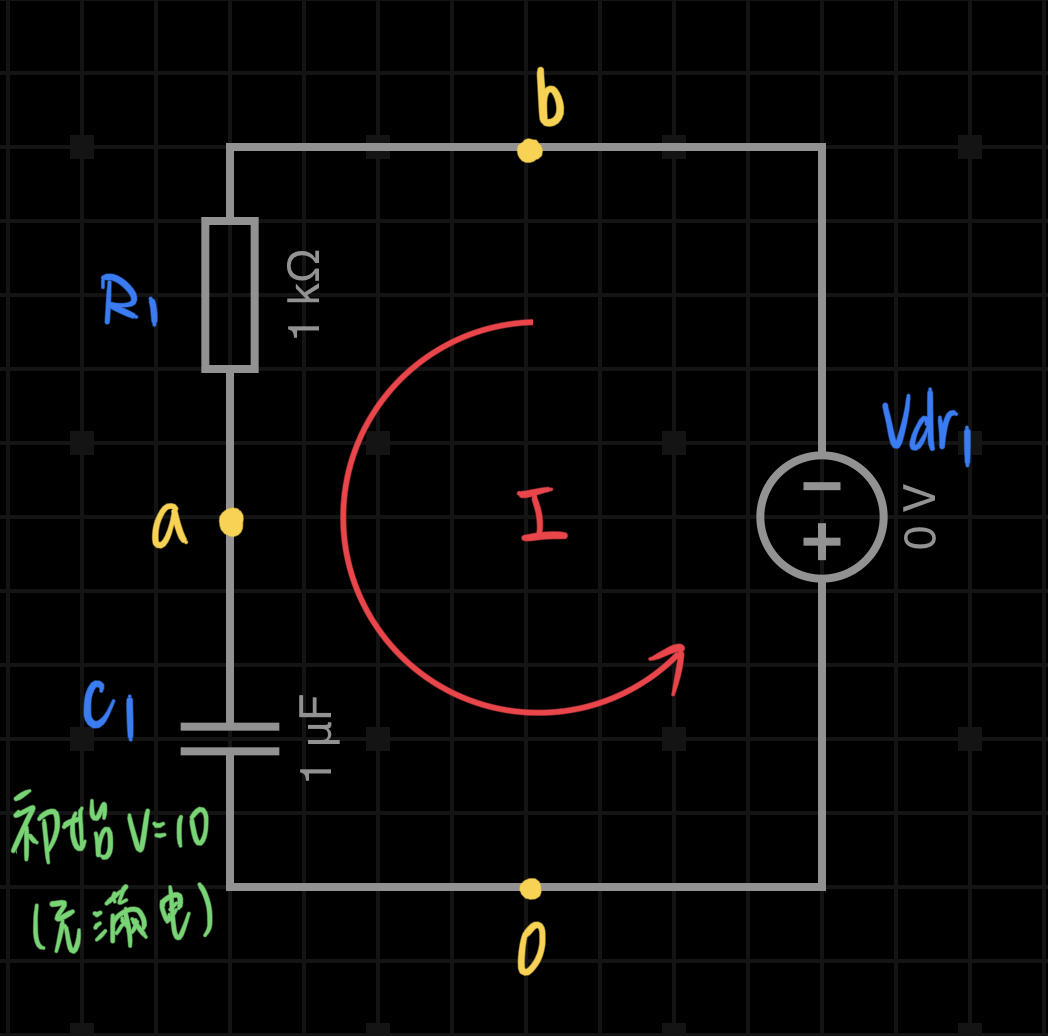 b
R1
1 kΩ
Vdr1
I
0 V
a
C1
1 μF
初始V=10
(充满电)
0